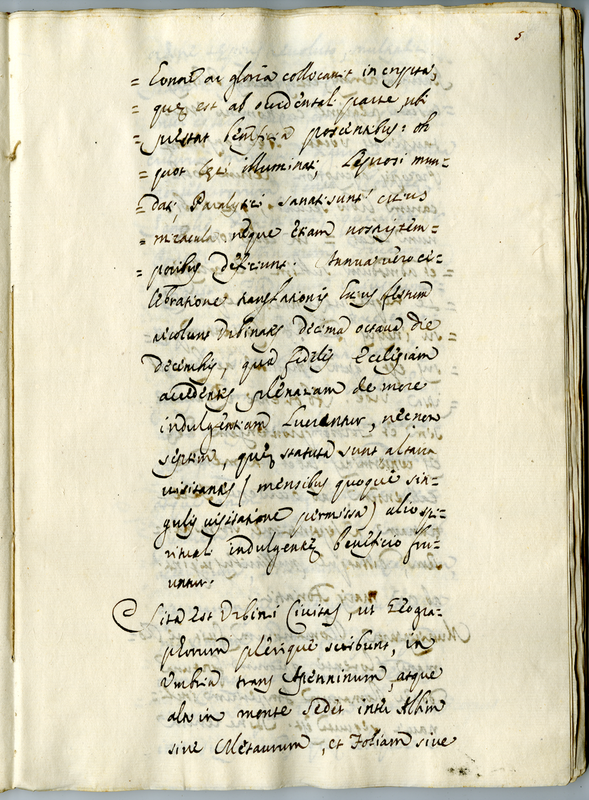 5
= honore ac gloria collocavit in crypta;
= quę est ab occidentali parte ubi
= pręstat beneficia poscentibus: ob
= quot cęci illuminati; Leprosi mun=
= dati; Paralytici sanati sunt: cuius
= miracula neque etiam nostris tem=
= poribus deficiunt. Annua vero ce=
lebratione translationis huius festum
recolunt Urbinates decima octava die
Decembris, qua fideles Ecclesiam
accedentes plenariam de more
indulgentiam lucrantur, necnon
septem, quę statuta sunt altaria
visitantes (mensibus quoque sin=
gulis visitatione permissa) alio spi=
rituali indulgentię beneficio fru=
untur.
Sita est Urbini Civitas, ut Geogra=
phorum plerique scribunt, in
Umbria trans Apenninum, atque
alto in monte sedet inter Albim
sive Metaurum, et Foliam sive